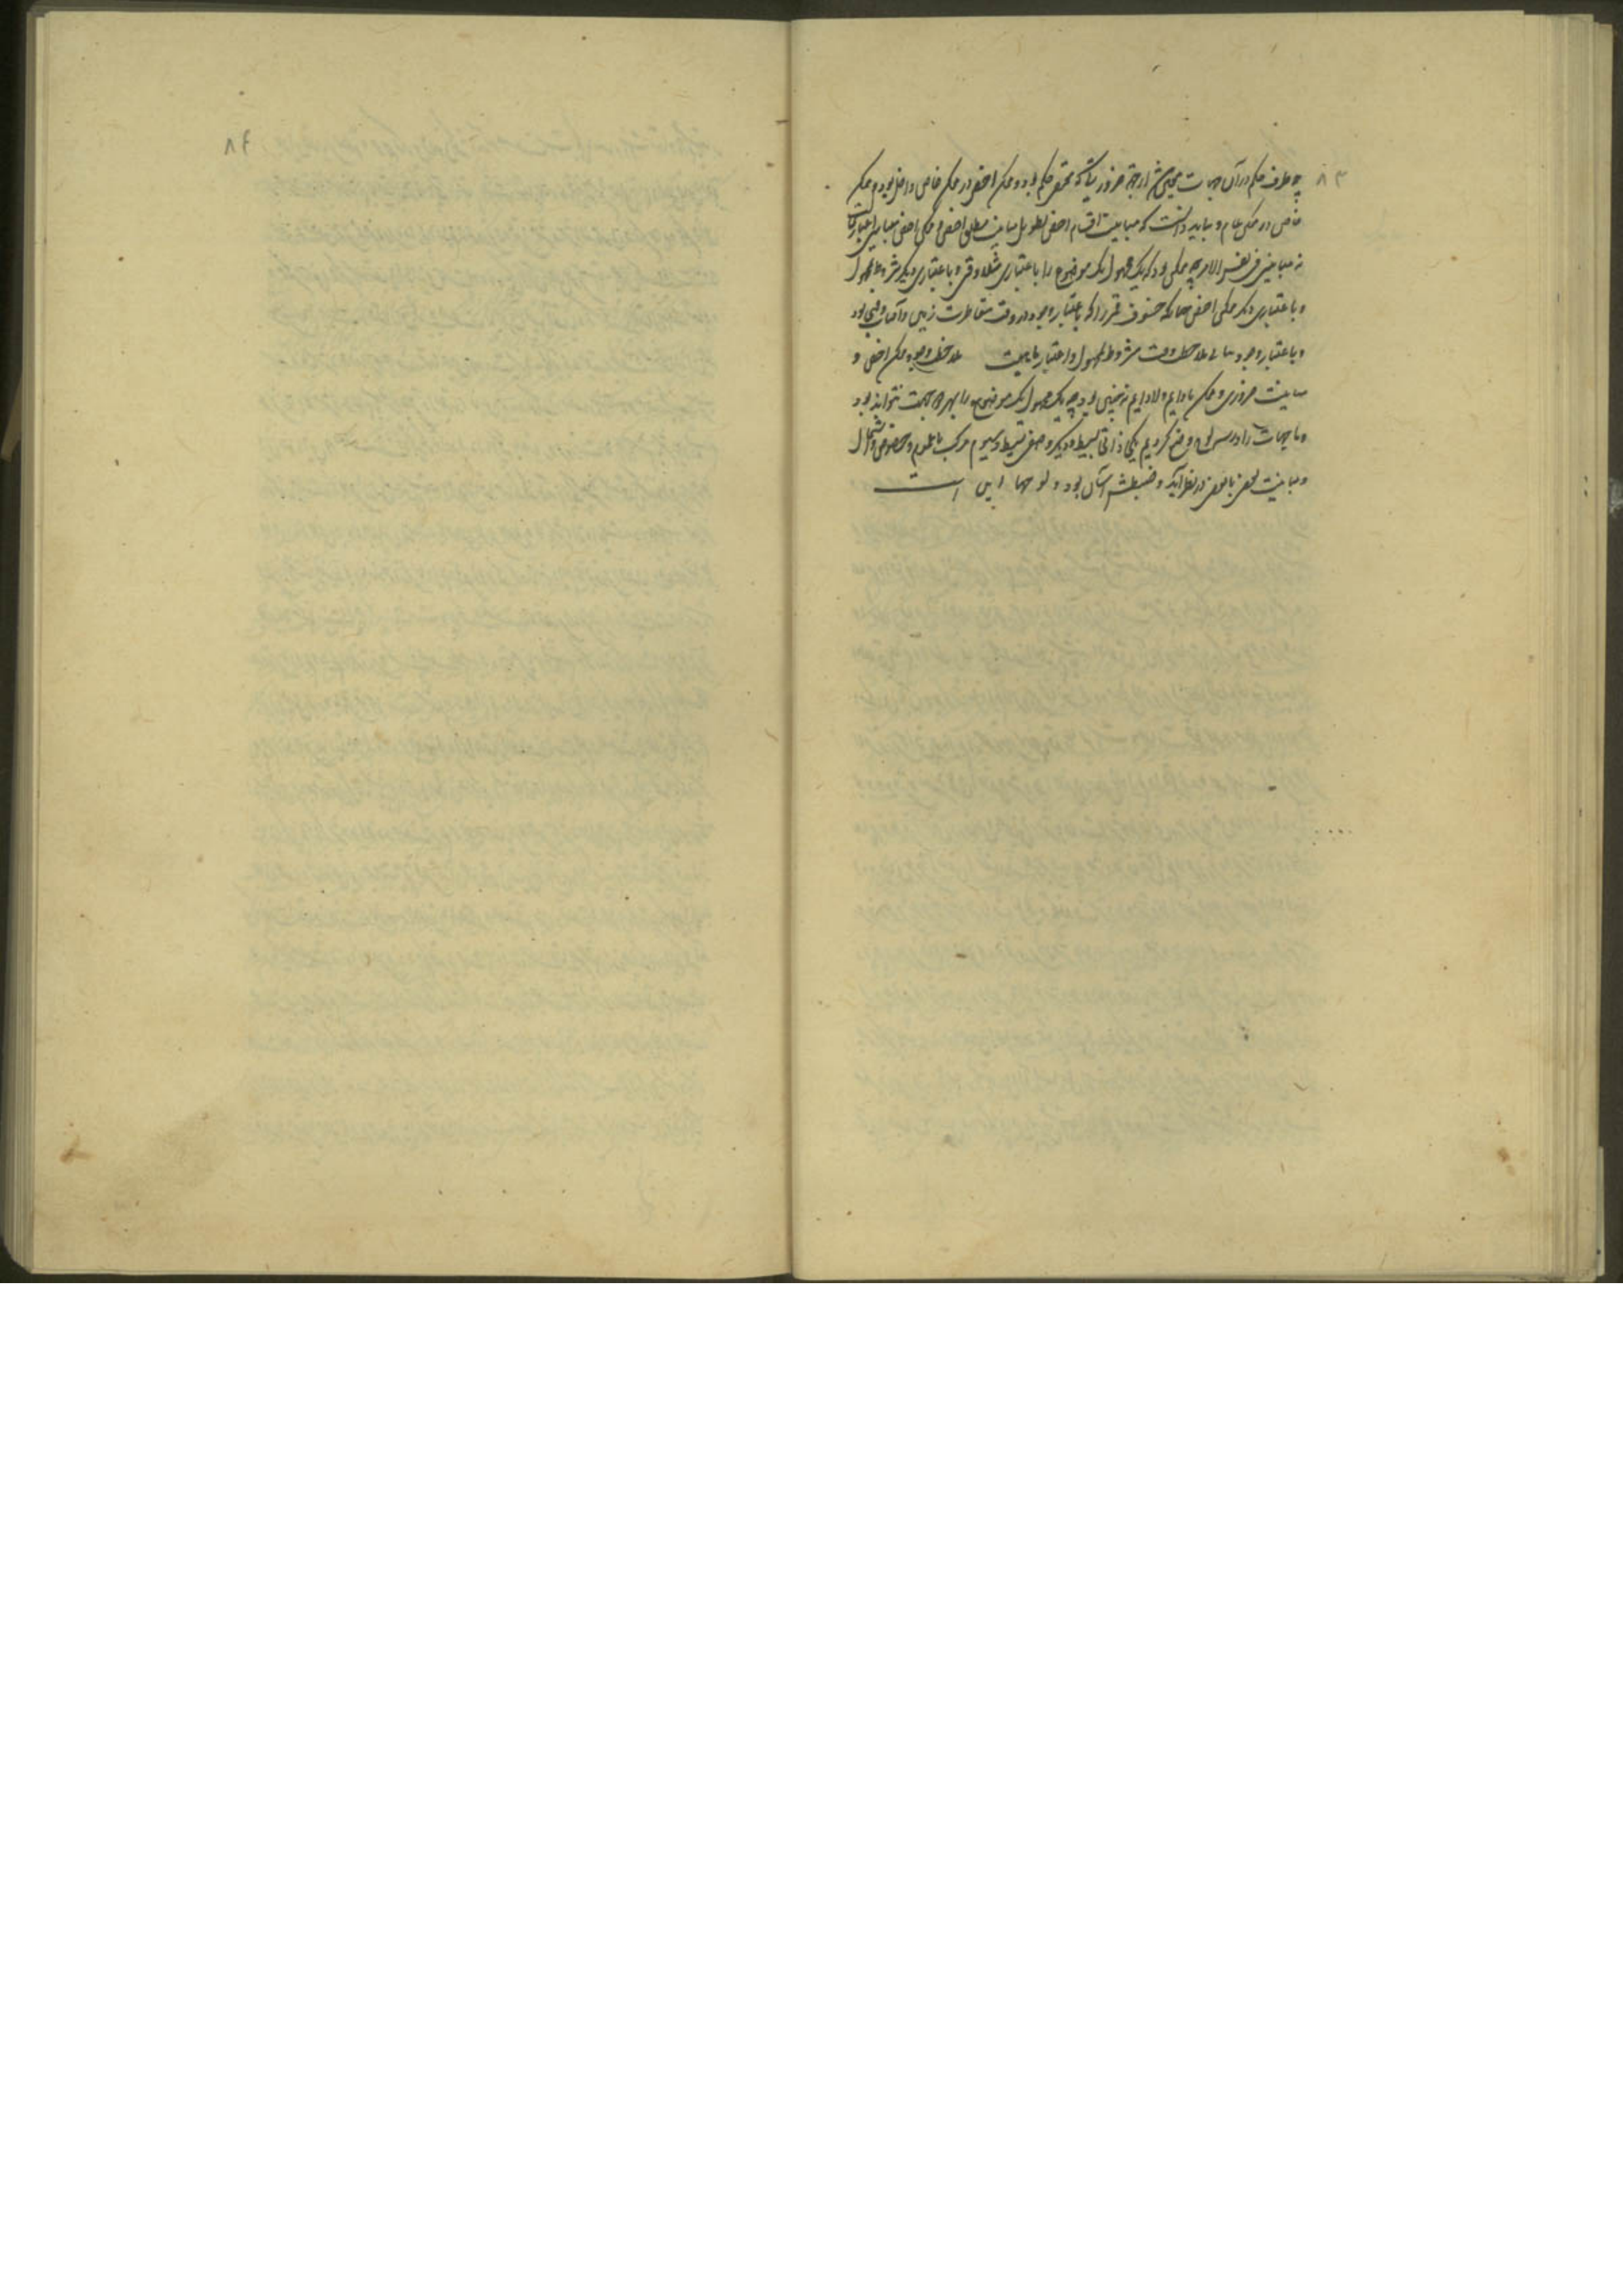 ٨٣
چه طرف حکم در آن جهات معین شد از جهة ضرورتیکه مقتضی حکم بود و ممکن اخص در ممکن خاص داخل بود و ممکن
خاص در ممکن عام و بباید دانست که مباینت اقسام اخص مطلق اخص و ممکن اخص اعتباریست
نه مباینتی فی نفس الامر چه ممکن بود که یک محمول یک موضوع را باعتباری مثلا وقتی و باعتباری دیگر مشروط بمحمول
و باعتباری دیگر ممکن اخص چنانکه خسوف قمر را که باعتبار وجود در وقت مقاطرت زمین و آفتاب وقتی بود
و باعتبار وجود بی ملاحظه وقت مشروط بمحمول و اعتبار ماهیت ملاحظه وجود ممکن اخص و
مباینت ضروری و ممکن یا دایم و لادایم نه چنین بود چه یک محمول یک موضوع را بهر دو جهت نتواند بود
و ما جهات را در سه لوح وضع کردیم یکی ذاتی بسیط و دیگر وصفی بسیط و سیوم مرکب تا عموم و خصوص و اشتمال
و مباینت بعض با بعض در نظر آید و ضبطش آسان بود و لوحها این است
٨٤